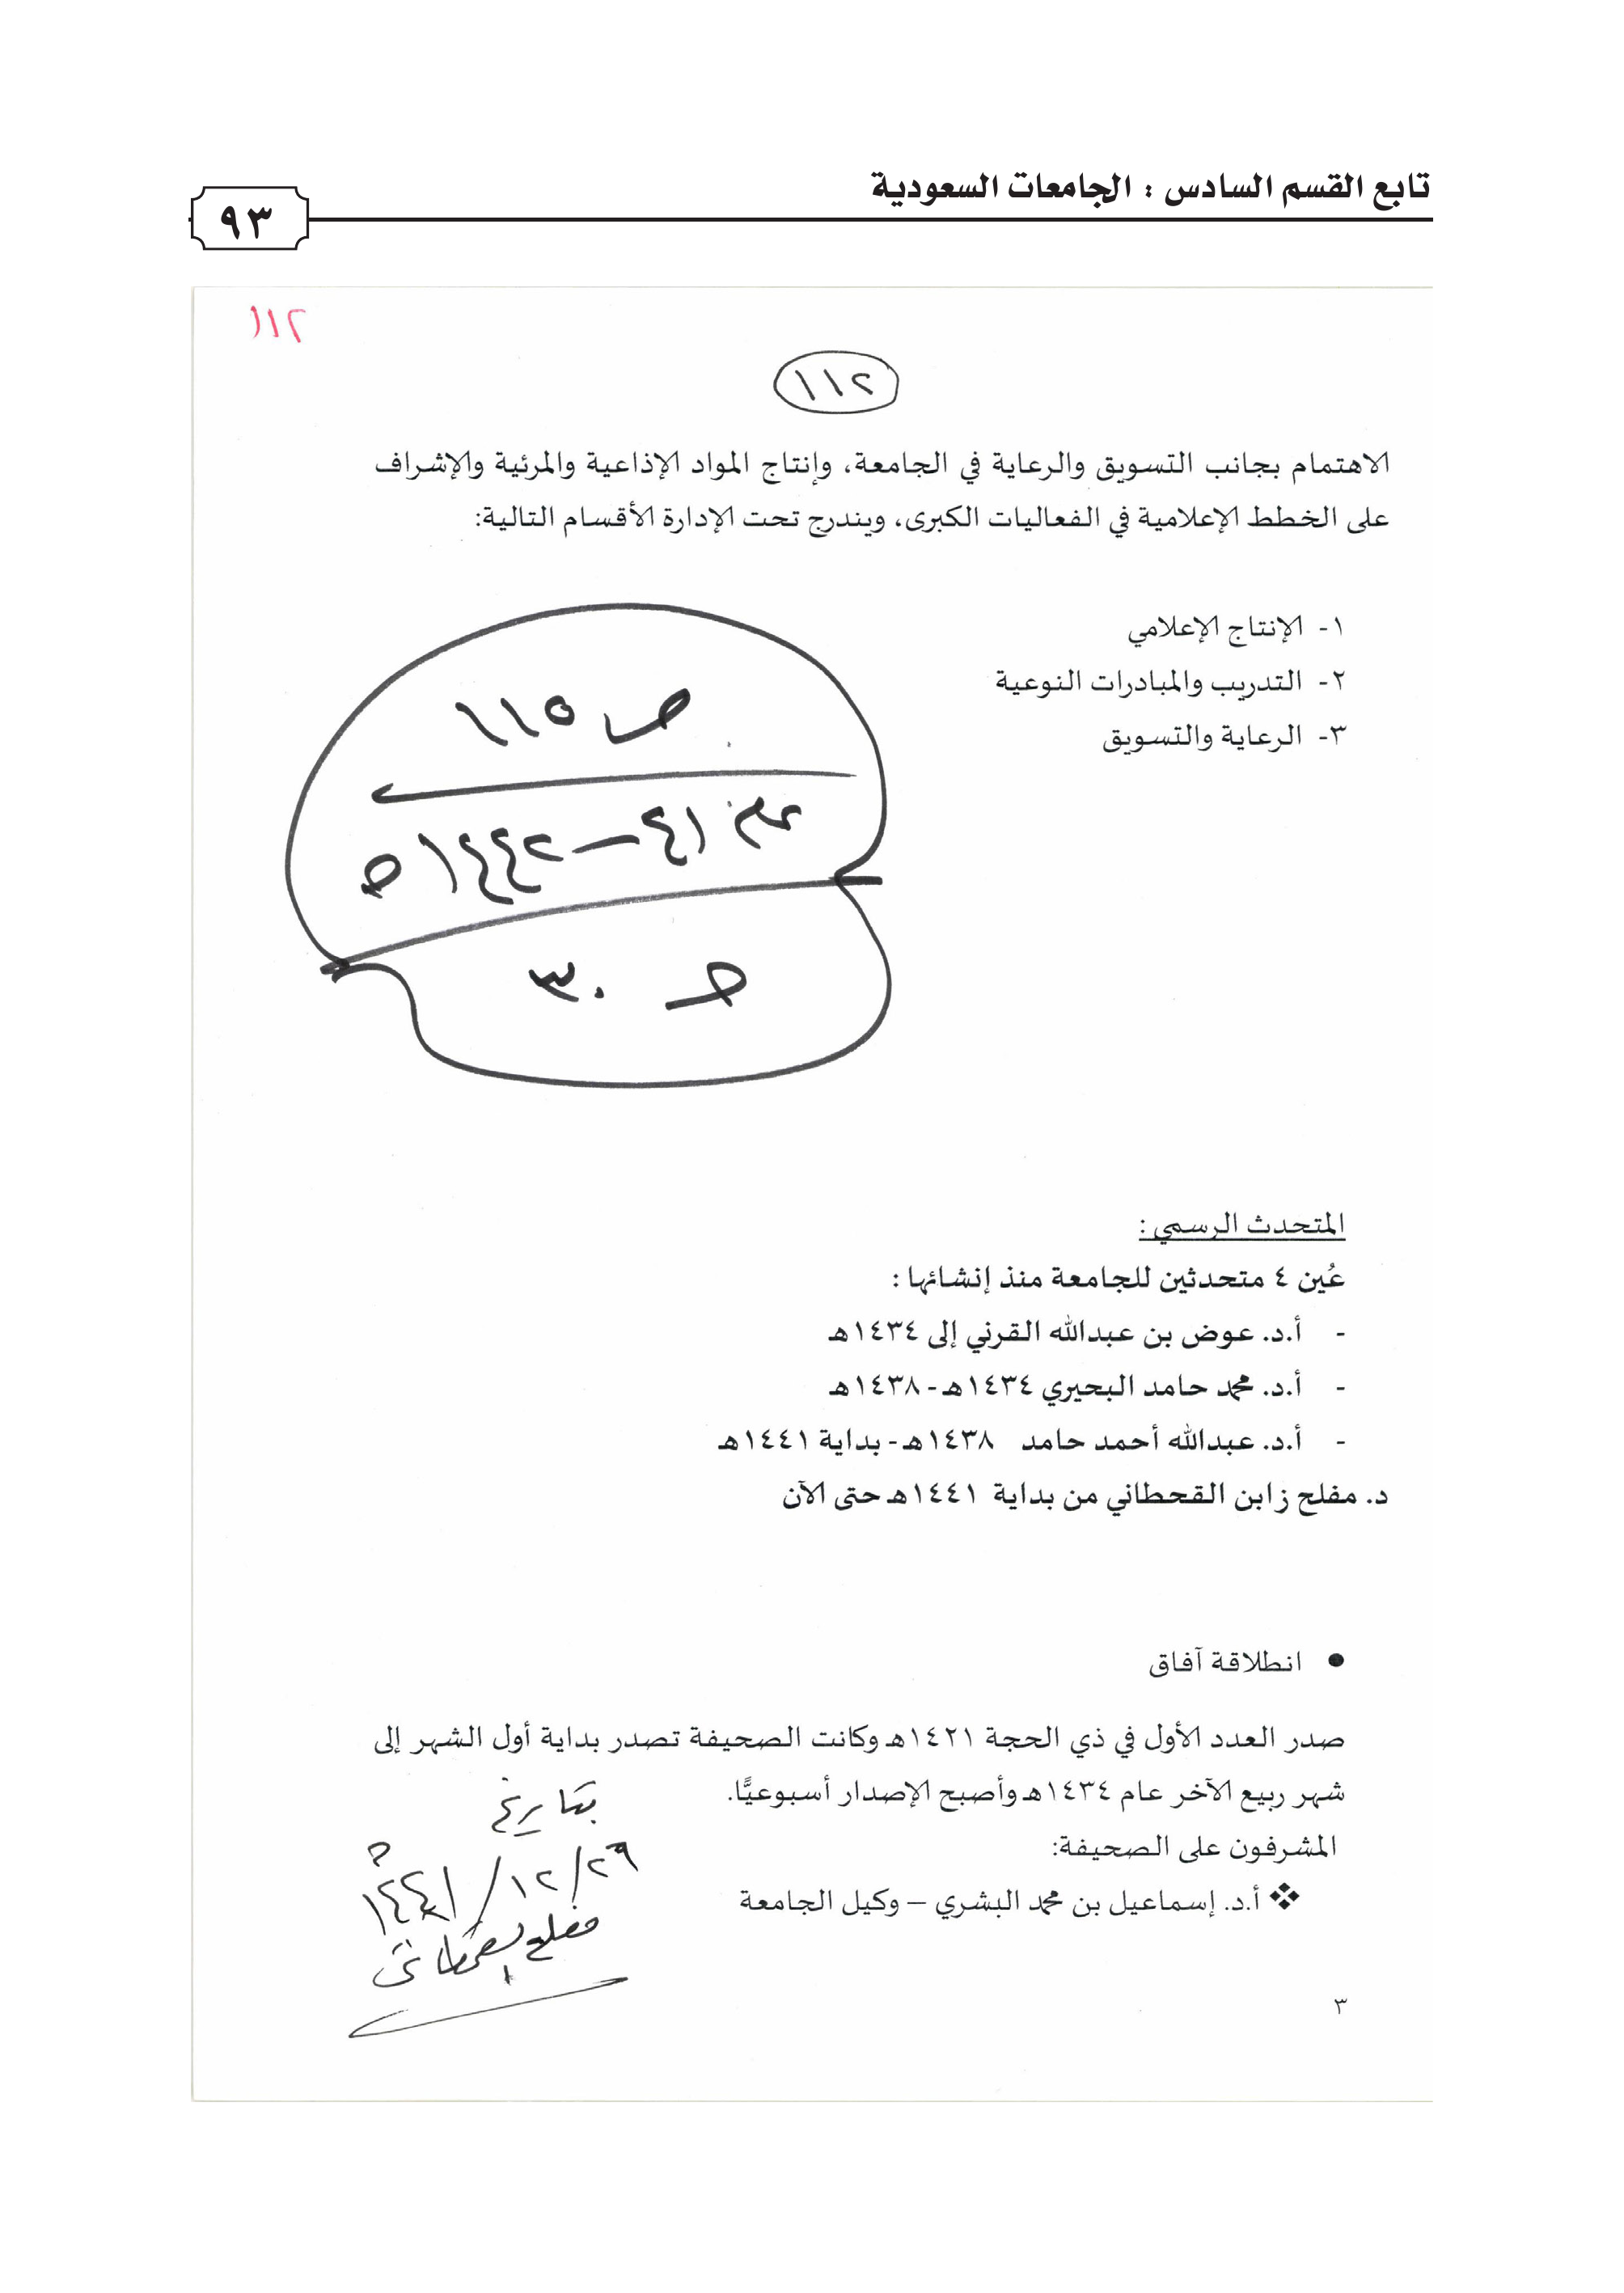 تابع القسم السادس : الجامعات السعودية
٩٣
١١٢
١١٢
الاهتمام بجانب التسويق والرعاية في الجامعة، وإنتاج المواد الإذاعية والمرئية والإشراف
على الخطط الإعلامية في الفعاليات الكبرى، ويندرج تحت الإدارة الأقسام التالية:
١- الإنتاج الإعلامي
٢- التدريب والمبادرات النوعية
٣- الرعاية والتسويق
ص ١١٥
عام ٤١ – ١٤٤٢ هـ
ص ٣٠
المتحدث الرسمي :
عُين ٤ متحدثين للجامعة منذ إنشائها :
- أ.د. عوض بن عبدالله القرني إلى ١٤٣٤هـ
- أ.د. محمد حامد البحيري ١٤٣٤هـ - ١٤٣٨هـ
- أ.د. عبدالله أحمد حامد ١٤٣٨هـ - بداية ١٤٤١هـ
د. مفلح زابن القحطاني من بداية ١٤٤١هـ حتى الآن
• انطلاقة آفاق
صدر العدد الأول في ذي الحجة ١٤٢١هـ وكانت الصحيفة تصدر بداية أول الشهر إلى
شهر ربيع الآخر عام ١٤٣٤هـ وأصبح الإصدار أسبوعيًّا.
المشرفون على الصحيفة:
❖ أ.د. إسماعيل بن محمد البشري – وكيل الجامعة
بتاريخ
٢٩/١٢/١٤٤١هـ
مفلح القحطاني
٣